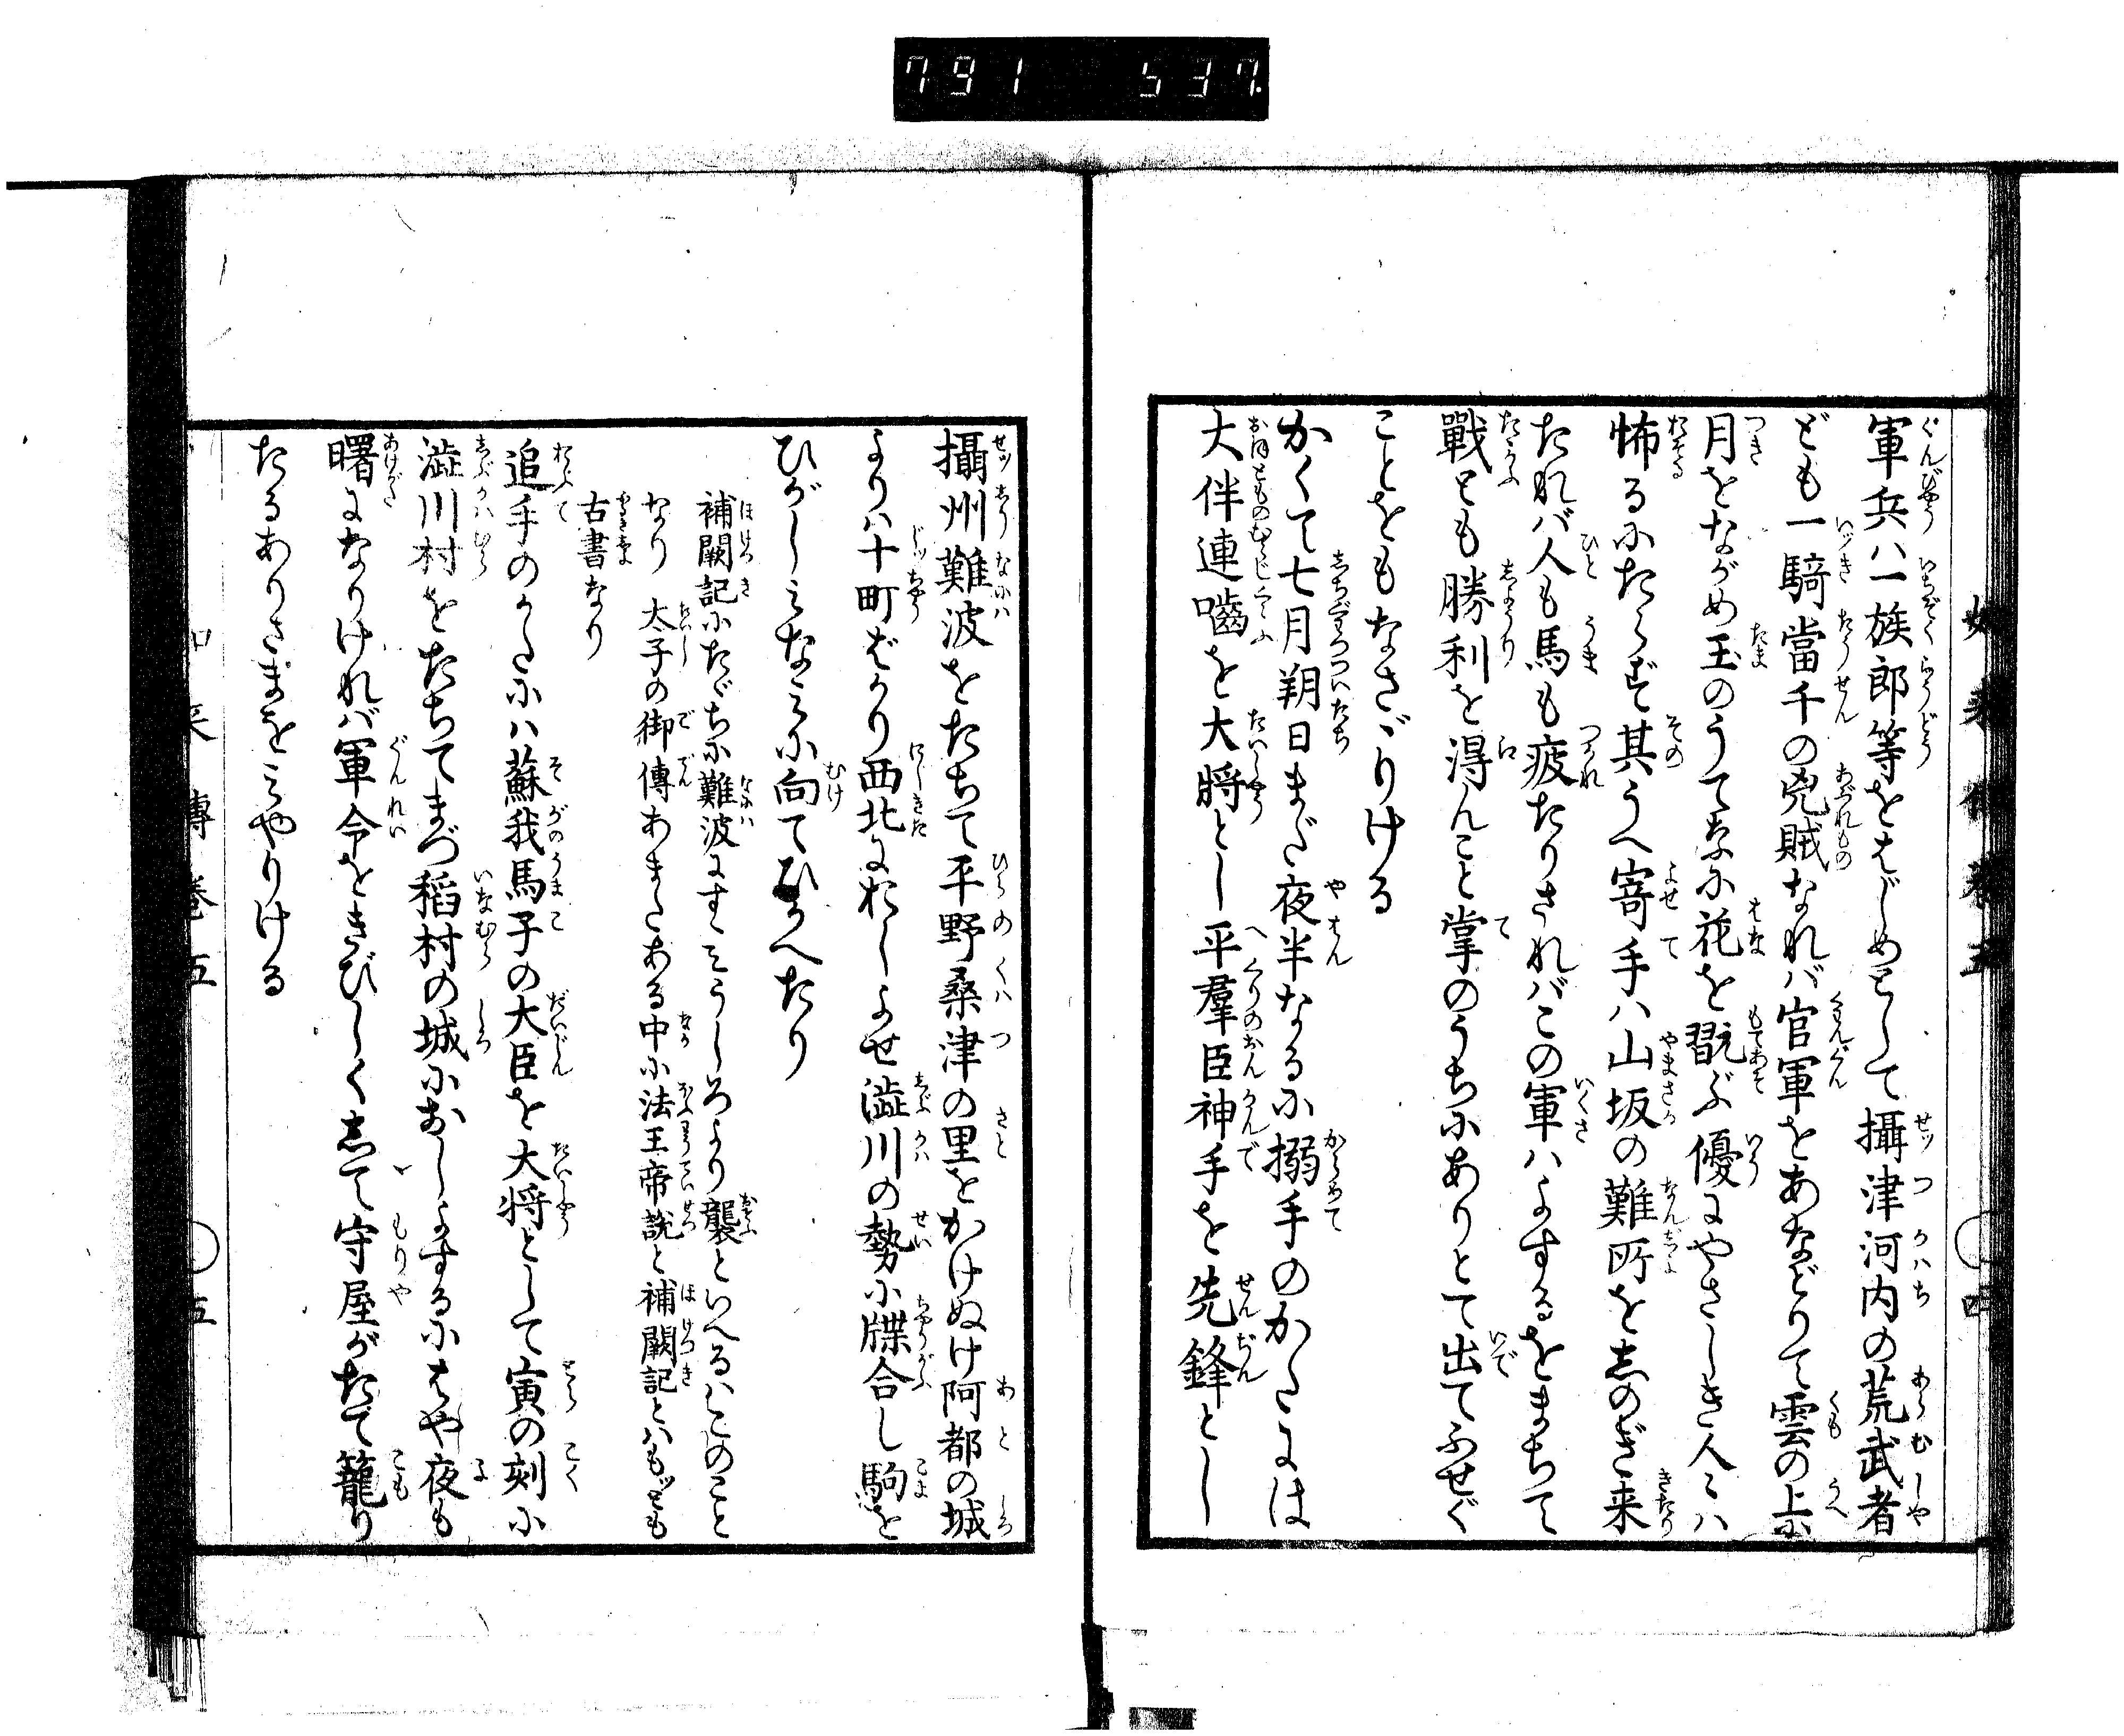 791 537.
軍兵ハ一族郎等をはじめとして攝津河内の荒武者
ども一騎當千の兇賊なれバ官軍をあなどりて雲の上に
月をながめ玉のうてなに花を翫ぶ優にやさしき人ミハ
怖るにたらず其うへ寄手ハ山坂の難所を志のぎ来
たれバ人も馬も疲たりされバこの軍ハよするをまちて
戰とも勝利を得んこと掌のうちにありとて出てふせぐ
ことをもなさゞりける
かくて七月朔日まだ夜半なるに搦手のかたには
大伴連嚙を大將とし平羣臣神手を先鋒とし
攝州難波をたちて平野桑津の里をかけぬけ阿都の城
よりハ十町ばかり西北におしよせ澁川の勢に牒合し駒を
ひがしミなミに向てひかへたり
補闕記にたゞちに難波にすゝミうしろより襲といへるハこのこと
なり 太子の御傳あまたある中に法王帝説と補闕記とハもツとも
古書なり
追手のかたにハ蘇我馬子の大臣を大将として寅の刻に
澁川村をたちてまづ稻村の城におしよするにはや夜も
曙になりけれバ軍令をきびしく志て守屋がたて籠り
たるありさまをミやりける
傳巻五
五